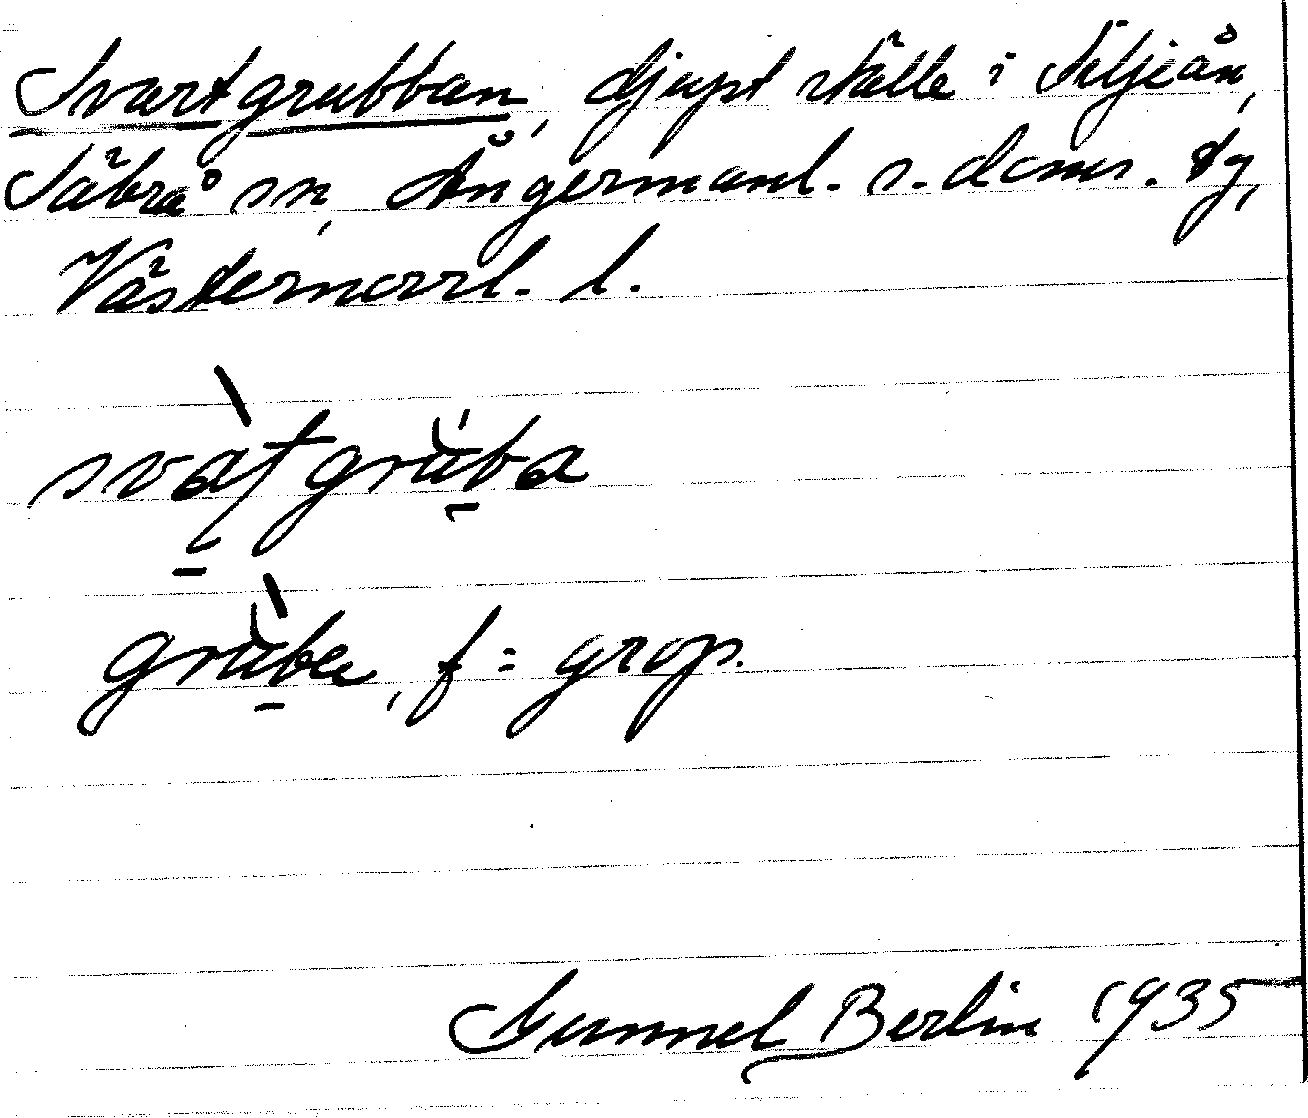 Svartgrubban, djupt ställe i Äljeån,
Säbrå sn, Ångermanl. s. doms. tg,
Västernorrl. l.
svàt grùba
grùba, f = grop.
Gunnel Berlin 1935